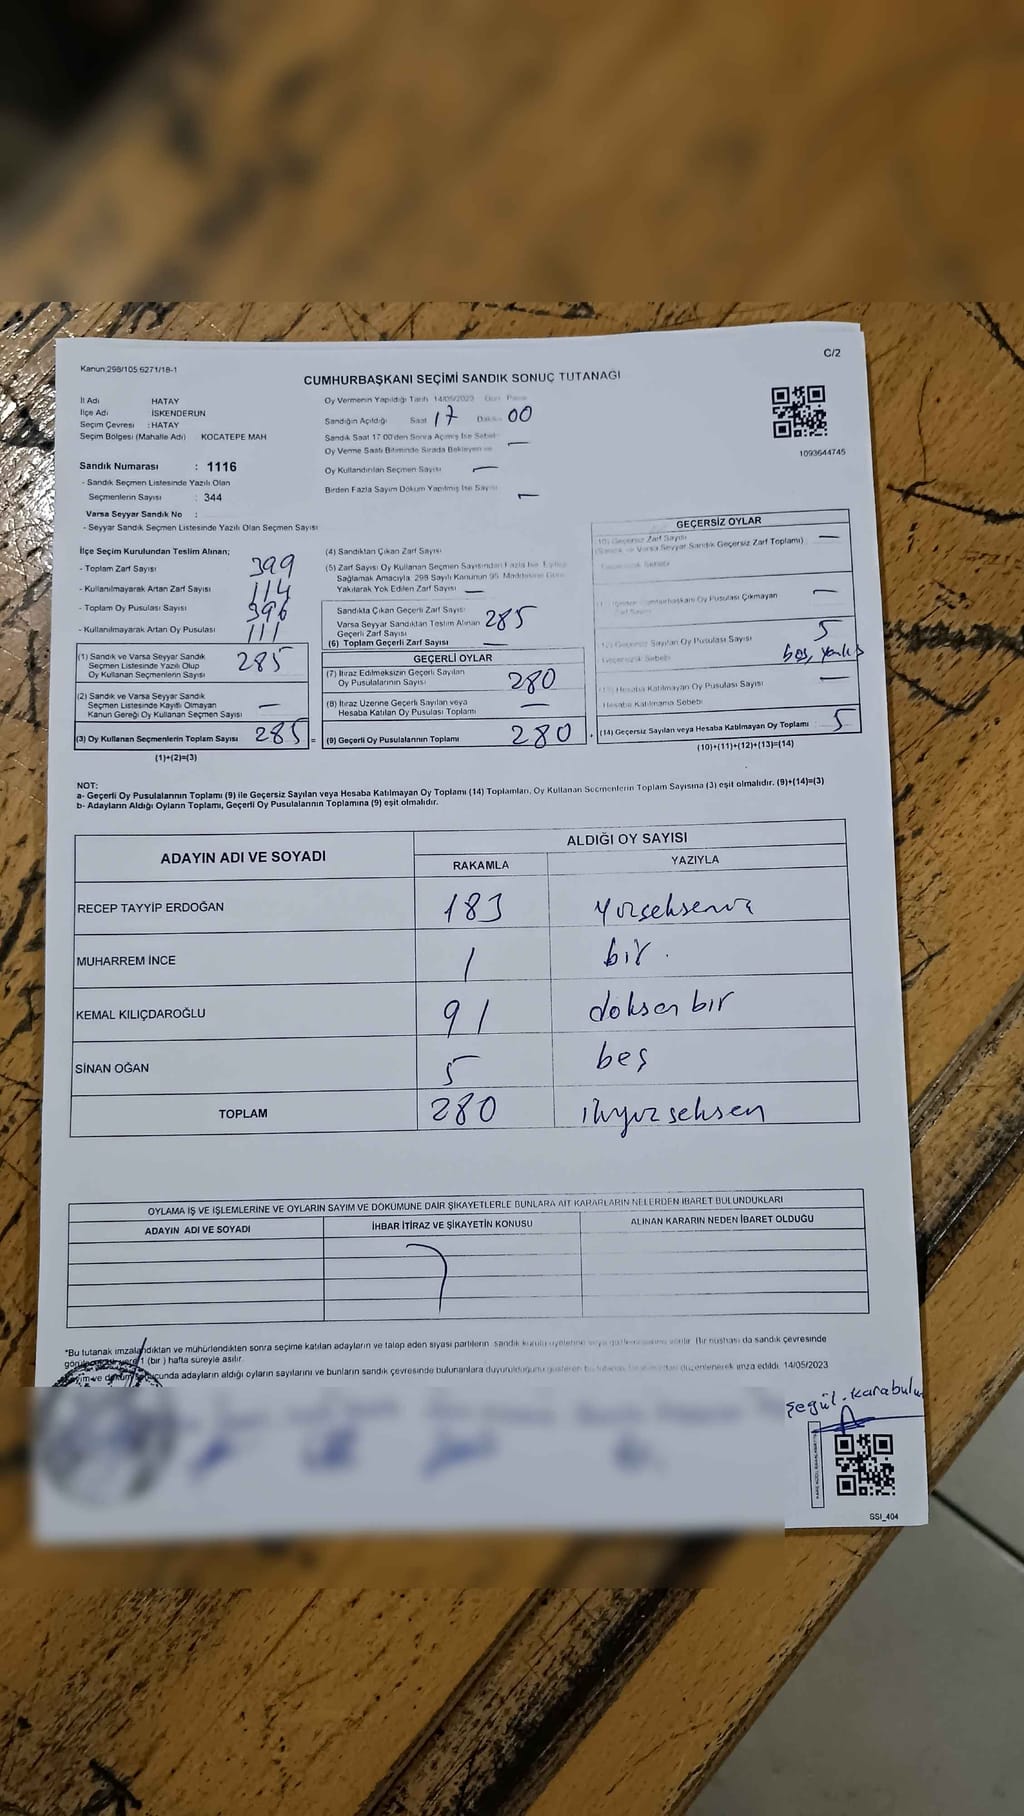 C/2
Kanun:298/105 6271/18-1
CUMHURBAŞKANI SEÇİMİ SANDIK SONUÇ TUTANAĞI
İl Adı HATAY
İlçe Adı İSKENDERUN
Seçim Çevresi : HATAY
Seçim Bölgesi (Mahalle Adı) KOCATEPE MAH
Sandık Numarası : 1116
- Sandık Seçmen Listesinde Yazılı Olan
Seçmenlerin Sayısı : 344
Varsa Seyyar Sandık No :
- Seyyar Sandık Seçmen Listesinde Yazılı Olan Seçmen Sayısı
Oy Vermenin Yapıldığı Tarih 14/05/2023
Sandığın Açıldığı Saat 17 00
Sandık Saat 17 00'den Sonra Açılmış İse
Oy Verme Saati Bitiminde Sırada Bekleyen
Oy Kullandırılan Seçmen Sayısı —
Birden Fazla Sayım Döküm Yapılmış İse Sayısı —
1093644745
İlçe Seçim Kurulundan Teslim Alınan;
- Toplam Zarf Sayısı 399
- Kullanılmayarak Artan Zarf Sayısı 114
- Toplam Oy Pusulası Sayısı 396
- Kullanılmayarak Artan Oy Pusulası 111
(1) Sandık ve Varsa Seyyar Sandık
Seçmen Listesinde Yazılı Olup
Oy Kullanan Seçmenlerin Sayısı 285
(2) Sandık ve Varsa Seyyar Sandık
Seçmen Listesinde Kayıtlı Olmayan
Kanun Gereği Oy Kullanan Seçmen Sayısı —
(3) Oy Kullanan Seçmenlerin Toplam Sayısı 285 =
(1)+(2)=(3)
(4) Sandıktan Çıkan Zarf Sayısı
(5) Zarf Sayısı Oy Kullanan Seçmen Sayısından Fazla İse
Sağlamak Amacıyla, 298 Sayılı Kanunun 95. Maddesine Göre
Yakılarak Yok Edilen Zarf Sayısı —
Sandıkta Çıkan Geçerli Zarf Sayısı
Varsa Seyyar Sandıktan Teslim Alınan 285
Geçerli Zarf Sayısı
(6) Toplam Geçerli Zarf Sayısı —
GEÇERLİ OYLAR
(7) İtiraz Edilmeksizin Geçerli Sayılan
Oy Pusulalarının Sayısı 280
(8) İtiraz Üzerine Geçerli Sayılan veya
Hesaba Katılan Oy Pusulası Toplamı —
(9) Geçerli Oy Pusulalarının Toplamı 280
GEÇERSİZ OYLAR
(10) Geçersiz Zarf Sayısı —
(Sandık ve Varsa Seyyar Sandık Geçersiz Zarf Toplamı)
Cumhurbaşkanı Oy Pusulası Çıkmayan —
Sayılan Oy Pusulası Sayısı 5
Geçersizlik Sebebi boş, yanlış
Hesaba Katılmayan Oy Pusulası Sayısı —
Hesaba Katılmama Sebebi
(14) Geçersiz Sayılan veya Hesaba Katılmayan Oy Toplamı 5
(10)+(11)+(12)+(13)=(14)
NOT:
a- Geçerli Oy Pusulalarının Toplamı (9) ile Geçersiz Sayılan veya Hesaba Katılmayan Oy Toplamı (14) Toplamları, Oy Kullanan Seçmenlerin Toplam Sayısına (3) eşit olmalıdır. (9)+(14)=(3)
b- Adayların Aldığı Oyların Toplamı, Geçerli Oy Pusulalarının Toplamına (9) eşit olmalıdır.
ADAYIN ADI VE SOYADI ALDIĞI OY SAYISI
RAKAMLA YAZIYLA
RECEP TAYYİP ERDOĞAN 183
MUHARREM İNCE 1 bir.
KEMAL KILIÇDAROĞLU 91 doksan bir
SİNAN OĞAN 5 beş
TOPLAM 280 ikiyüz seksen
OYLAMA İŞ VE İŞLEMLERİNE VE OYLARIN SAYIM VE DÖKÜMÜNE DAİR ŞİKAYETLERLE BUNLARA AİT KARARLARIN NELERDEN İBARET BULUNDUKLARI
ADAYIN ADI VE SOYADI İHBAR İTİRAZ VE ŞİKAYETİN KONUSU ALINAN KARARIN NEDEN İBARET OLDUĞU
*Bu tutanak imzalandıktan ve mühürlendikten sonra seçime katılan adayların ve talep eden siyasi partilerin sandık verilir. Bir nüshası da sandık çevresinde
1 (bir) hafta süreyle asılır.
adayların aldığı oyların sayılarını ve bunların sandık çevresinde bulunanlara duyurulduğunu gösteren düzenlenerek imza edildi. 14/05/2023
şegül. Karabulu
SSI_404